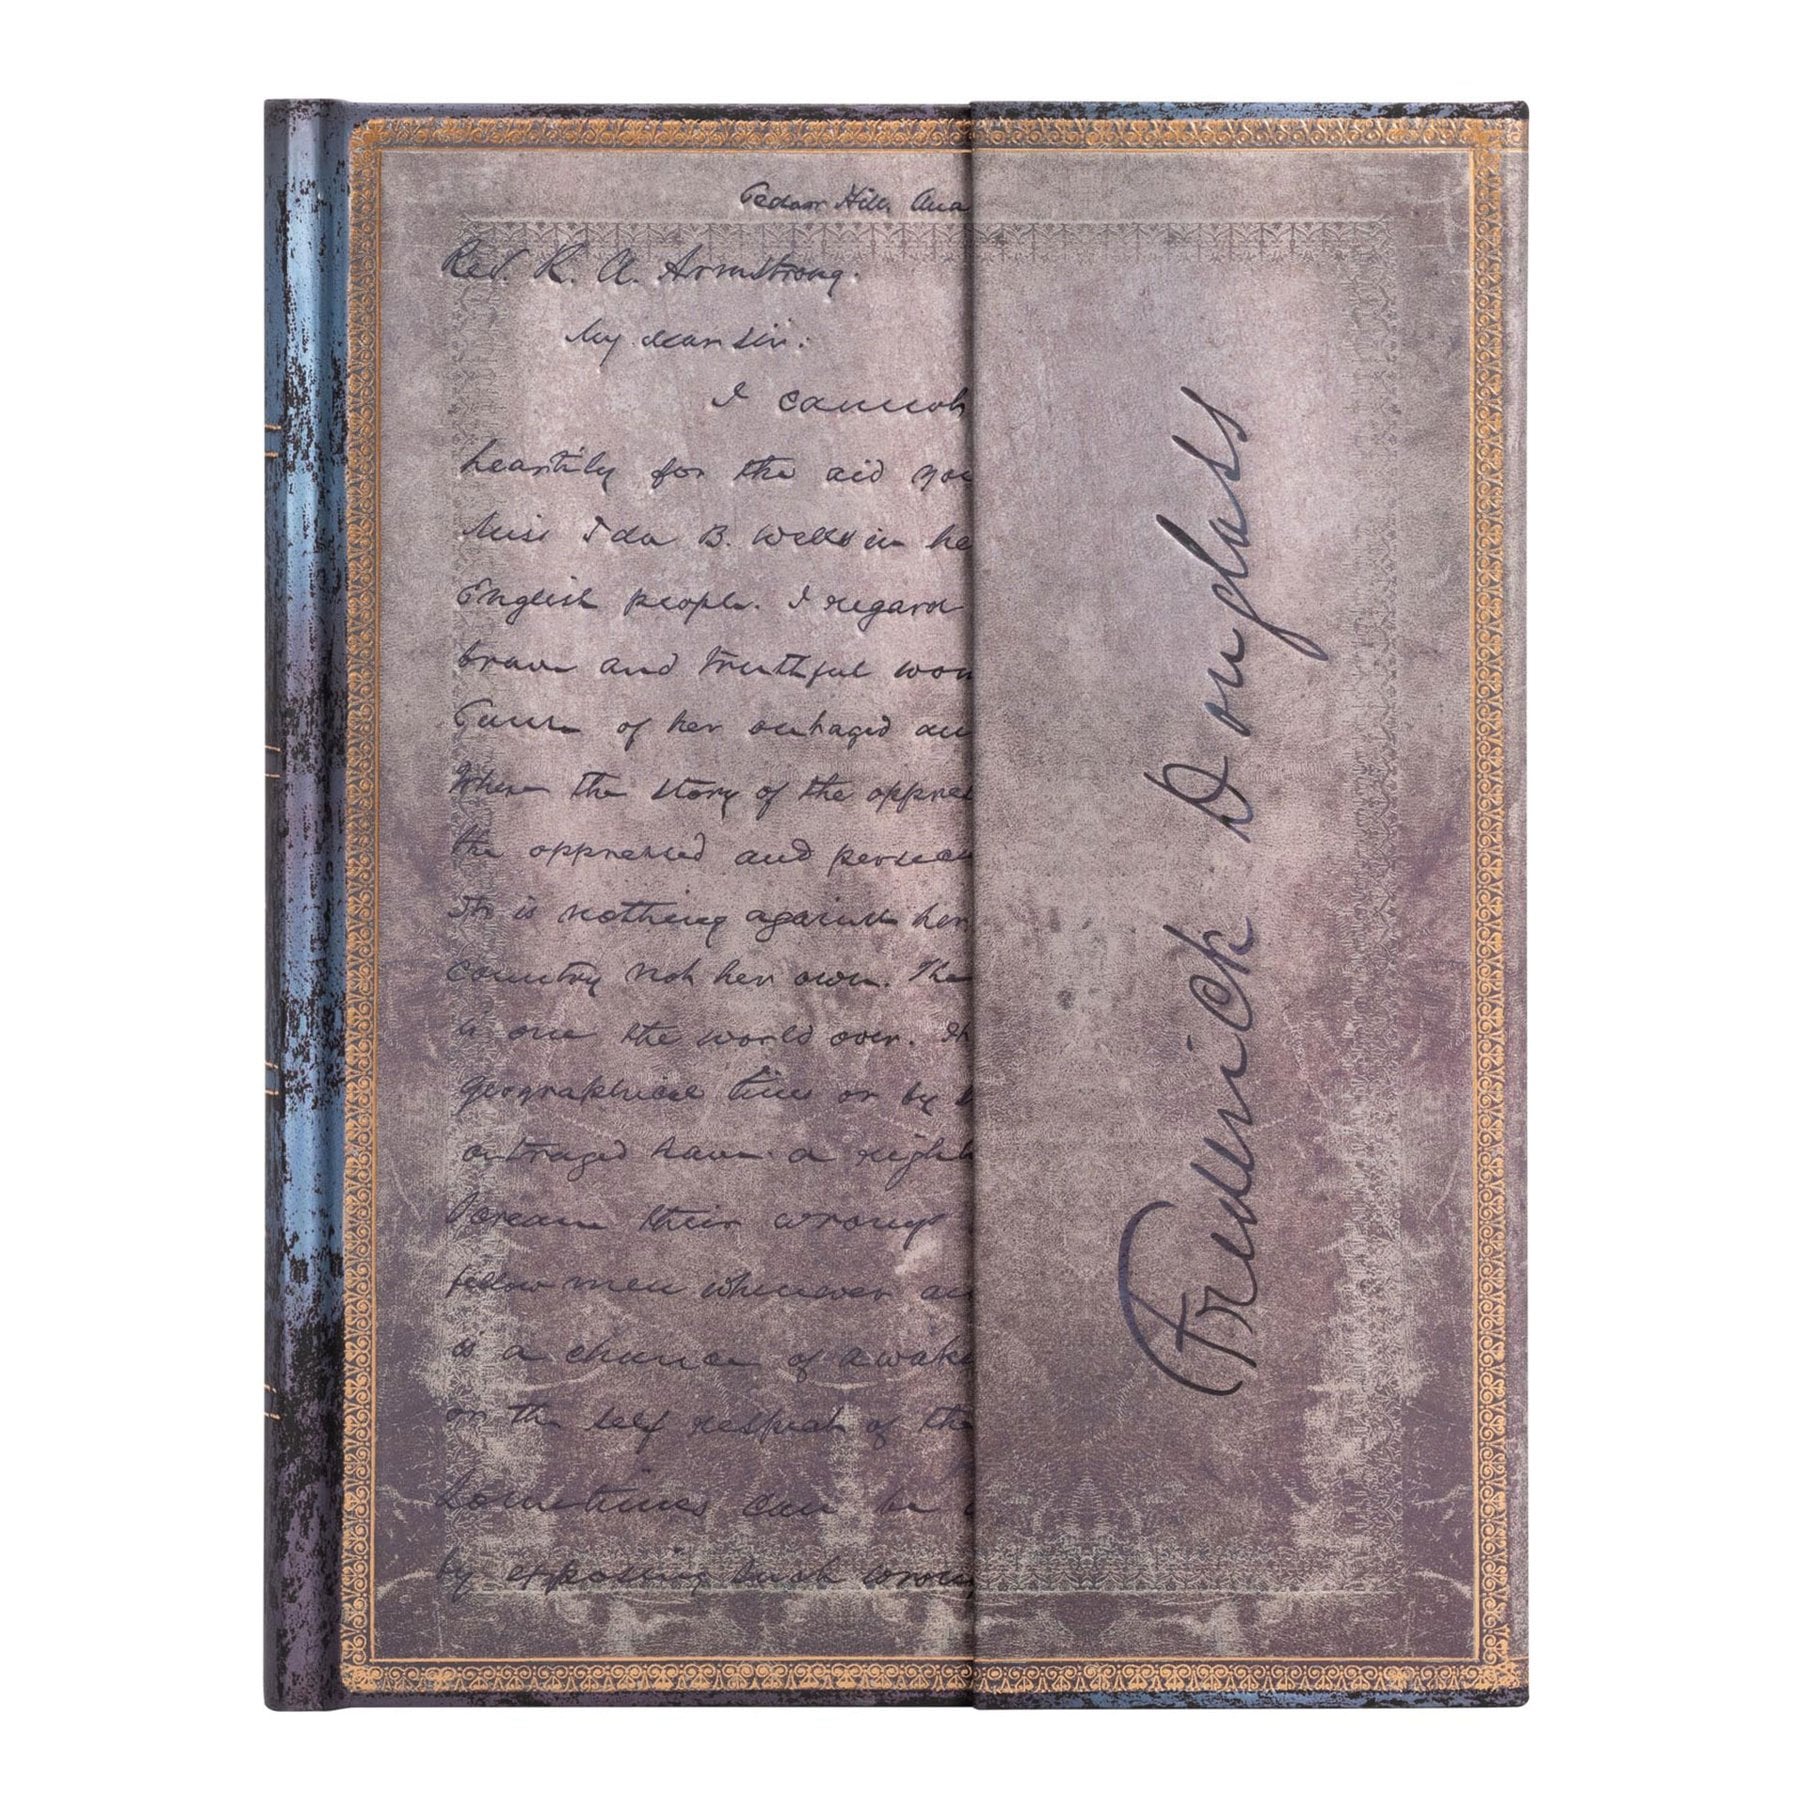 Cedar Hill, Ana
Rev. R. A. Armstrong.
My dear sir:
I cannot
heartily for the aid you
Miss Ida B. Wells in he
English people. I regard
brave and truthful wom
Cause of her outraged an
Where the story of the oppres
the oppressed and persecu
It is nothing against her
country not her own. The
is one the world over.
geographical lines or by
outraged have a right
scream their wrongs
fellow men whenever an
is a chance of awake
or the self respect of the
Sometimes can be
by exposing such wrong
Frederick Douglass